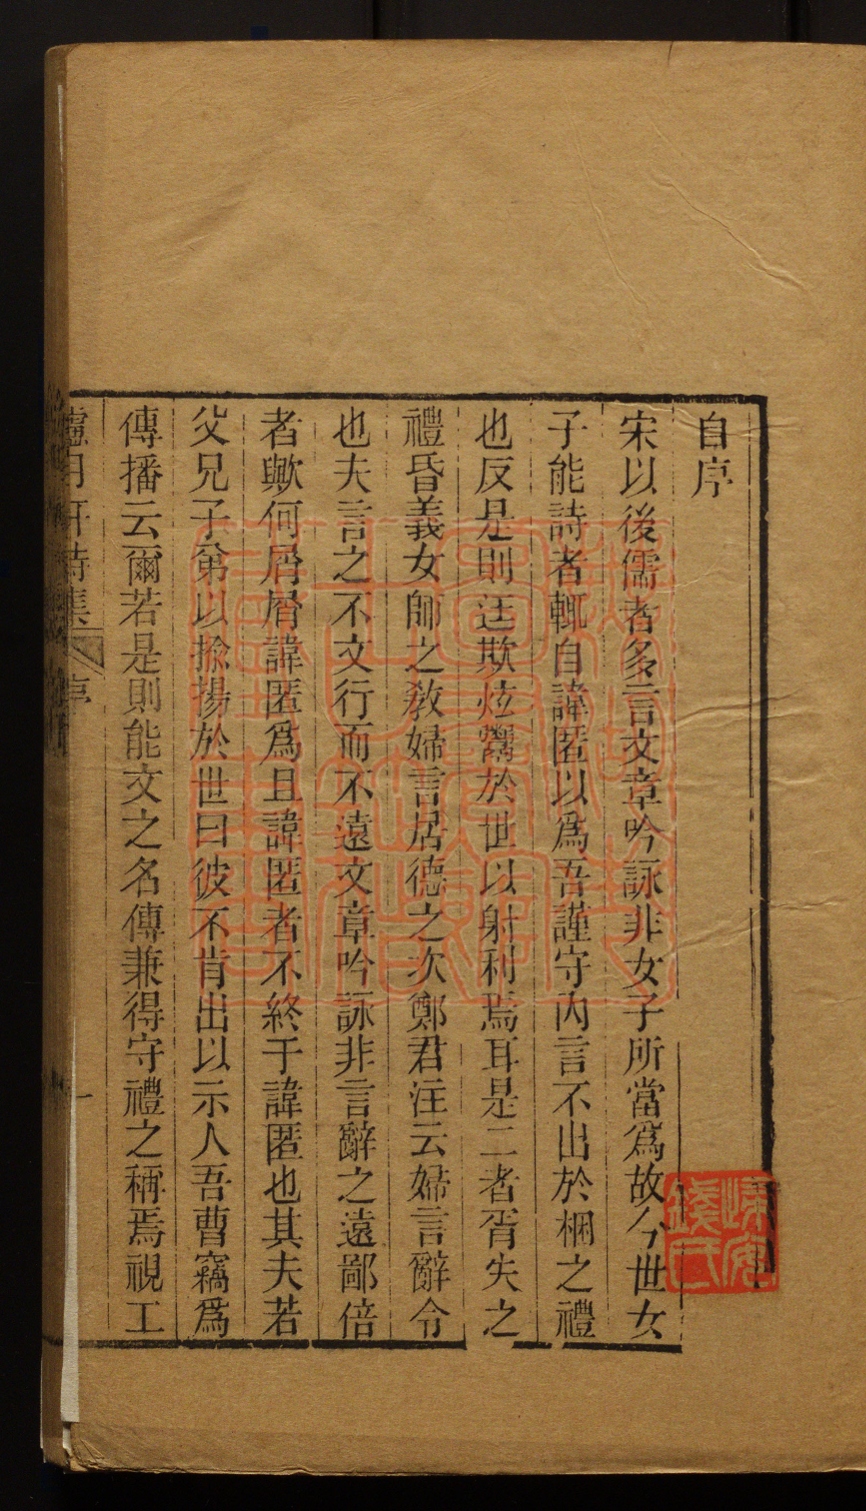 自序
宋以後儒者多言文章吟詠非女子所當爲故今世女
子能詩者輒自諱匿以爲吾謹守內言不出於梱之禮
也反是則迋欺炫鬻於世以射利焉耳是二者胥失之
禮昏義女師之敎婦言居德之次鄭君注云婦言辭令
也夫言之不文行而不遠文章吟詠非言辭之遠鄙倍
者歟何屑屑諱匿爲且諱匿者不終于諱匿也其夫若
父兄子弟以揄揚於世曰彼不肯出以示人吾曹竊爲
傳播云爾若是則能文之名傳兼得守禮之稱焉視工
慮月軒詩集 序 一